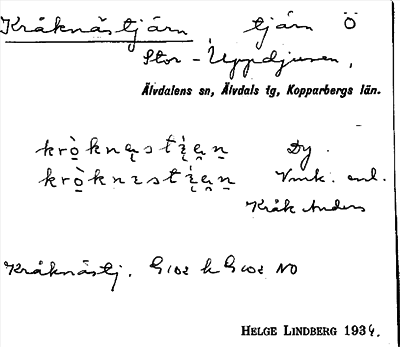 Kråknästjärn tjärn Ö
Stor-Uppdjusen,
Älvdalens sn, Älvdals tg, Kopparbergs län.
Dy.
Vmk. enl.
Kråk Anders
Kråknästj. G102 h G102 NO
HELGE LINDBERG 1934.